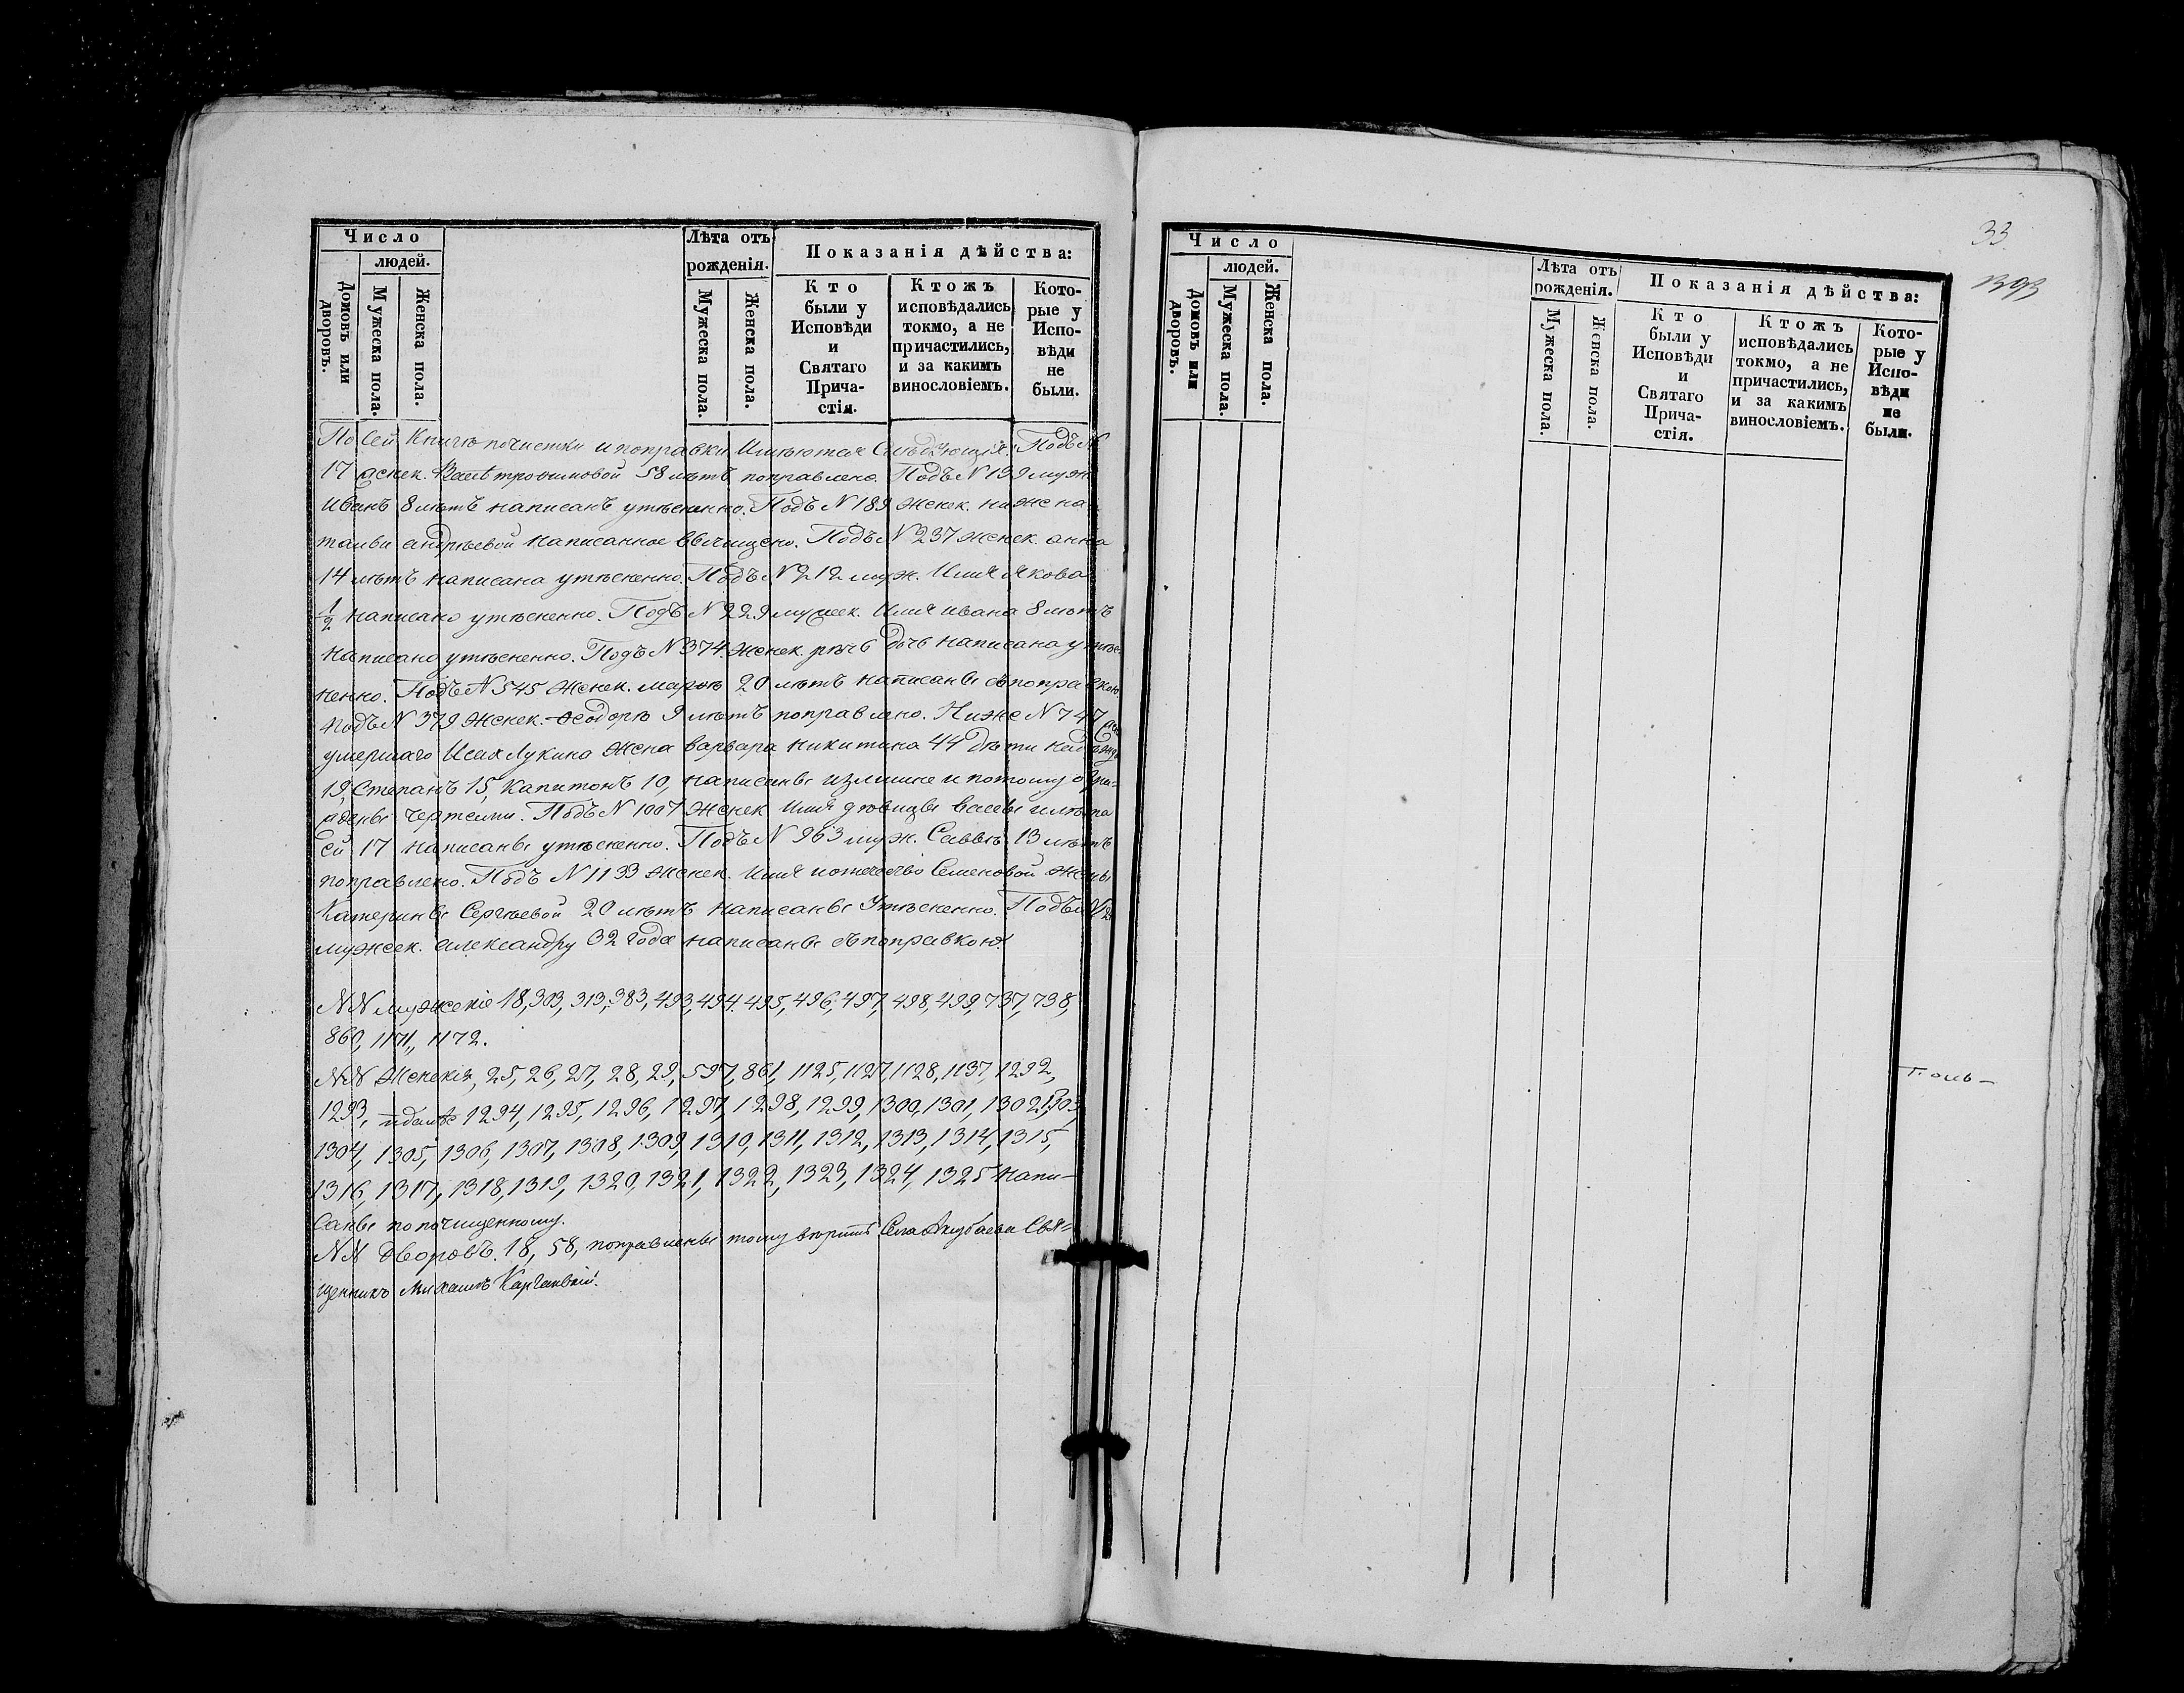 Число
людей.
Домовъ или дворовъ.
Мужеска пола.
Женска пола.
Лѣта отъ рожденія.
Мужеска пола.
Женска пола.
Показанія дѣйства:
Кто были у Исповѣди и Святаго Прича-стія.
Ктожъ исповѣдались токмо, а не причастились, и за какимъ винословіемъ.
Кото-рые у Испо-вѣди не были.
По сей Книгѣ почистки и поправки Имѣются Слѣдующія: Подъ N
17 женск. трофимовой 58 лѣтъ поправлено. Подъ N 139 муж.
Иванъ 8 лѣтъ написанъ утѣсненно. Подъ N 189 женск. ниже на
тальи андрѣевой написанное вычищено. Подъ N 237 женск. анна
14 лѣтъ написана утѣсненно. Подъ N 212 муж. Имя Якова
1/2 написано утѣсненно. Подъ N 229 мужеск. Имя ивана 8 лѣтъ
написано утѣсненно. Подъ N 374. женск. рѣчь дочь написана утѣс-
ненно. Подъ N 545 женск. марѳѣ 20 лѣтъ написаны съ поправкою.
Подъ N 379 женск. ѳеодорѣ 9 лѣтъ поправлено. Ниже N 747
умершаго Исая Лукина жена варвара никитина 44 дѣти
19, Степанъ 15, Капитонъ 10, написаны излишне и потому
чертами. Подъ N 1007 женск Имя дѣвицы васвы и лѣта
ей 17 написаны утѣсненно. Подъ N 963 муж. Саввѣ 13 лѣтъ
поправлено. Подъ N 1133 женск. Имя и отечество Семеновой жены
Катерины Сергѣевой 20 лѣтъ написаны Утѣсненно. Подъ N
мужеск. александру 32 года написаны съ поправкою.
NN мужескіе 18, 303, 313, 383, 493, 494. 495, 496, 497, 498, 499, 737, 738,
860, 1171, 1172.
NN Женскія, 25, 26, 27, 28, 29, 597, 861, 1125, 1127, 1128, 1137, 1292,
1293, и далѣе 1294, 1295, 1296, 1297, 1298, 1299, 1300, 1301, 1302, 1303,
1304, 1305, 1306, 1307, 1308, 1309, 1310, 1311, 1312, 1313, 1314, 1315,
1316, 1317, 1318, 1319, 1320, 1321, 1322, 1323, 1324, 1325 напи-
саны по почищенному.
NN дворовъ. 18, 58, поправлены тому вѣритъ Села Акузаева Свя=
щенникъ Михаилъ
33
1393
Число
людей.
Домовъ или дворовъ.
Мужеска пола.
Женска пола.
Лѣта отъ рожденія.
Мужеска пола.
Женска пола.
Показанія дѣйства:
Кто были у Исповѣди и Святаго Прича-стія.
Ктожъ исповѣдались токмо, а не причастились, и за какимъ винословіемъ.
Кото-рые у Испо-вѣди не были.